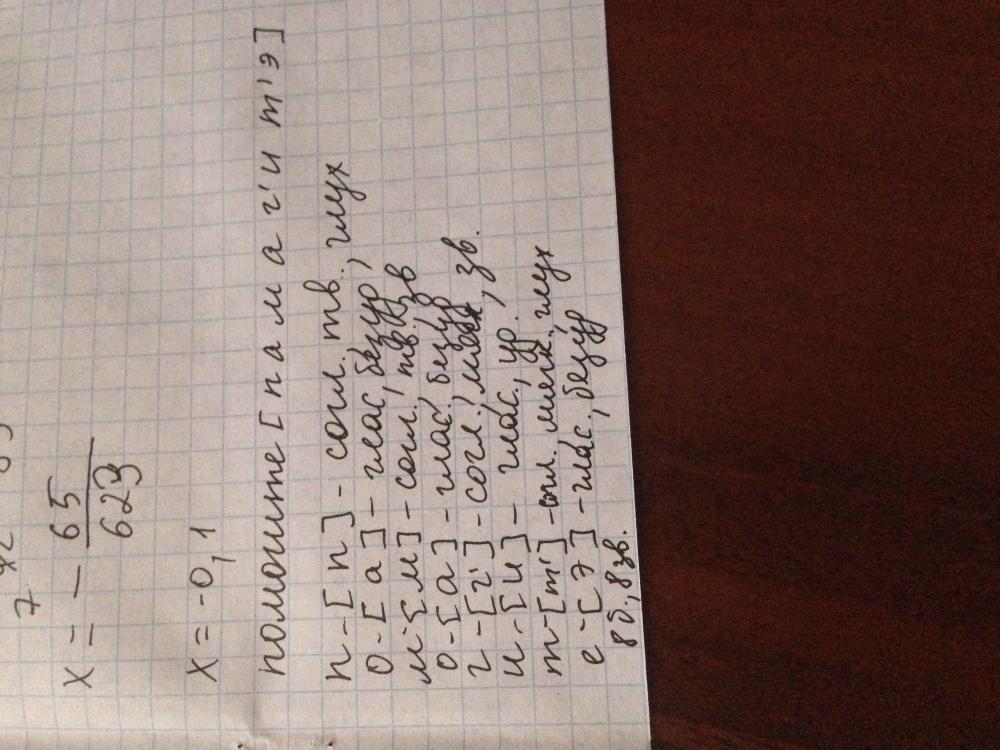 7
x = - 65
623
x = -0,1
помогите [п а м а г'и т'э]
п-[п]- согл. тв., глух
о-[а]-глас, безур,
м-[м]-согл., тв., зв
о-[а]-глас. безур
г-[г']-согл., мягк, зв.
и-[и]- глас., ур.
т-[т']-согл. мягк., глух
е-[э]-глас., безур
8б., 8зв.